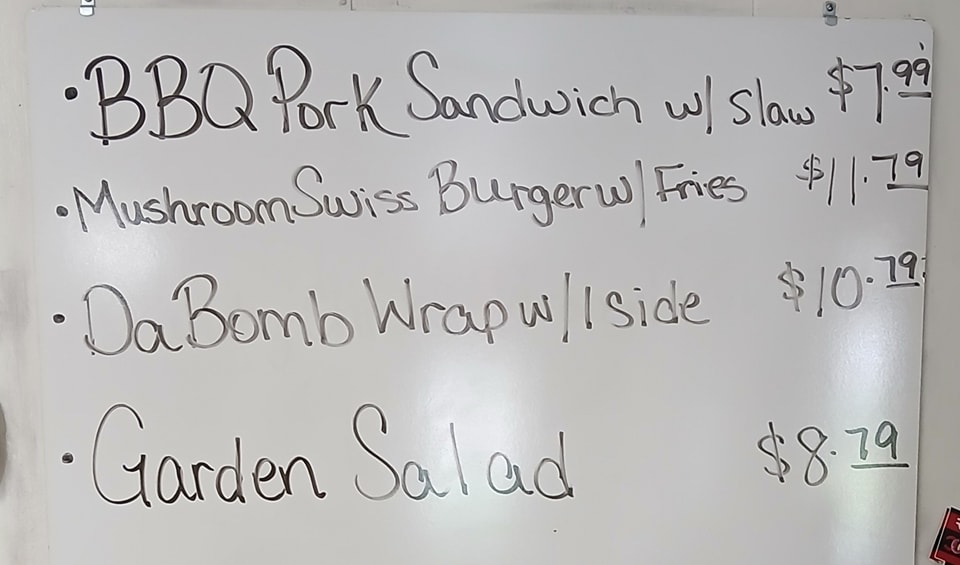 • BBQ Pork Sandwich w/ Slaw $7.99
• Mushroom Swiss Burger w/ Fries $11.79
• Da Bomb Wrap w/ 1 side $10.79
• Garden Salad $8.79